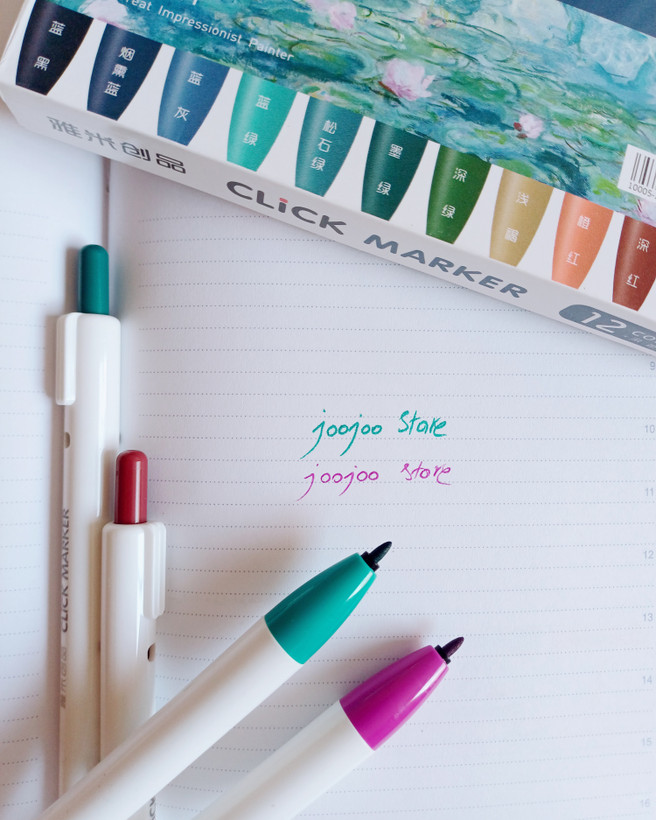 reat Impressionist Painter
蓝黑
烟熏蓝
蓝灰
蓝绿
松石绿
墨绿
深绿
浅褐
橙红
深红
雅米创品
CLiCK MARKER
12
joojoo store
joojoo store
9
10
11
12
13
14
15
16
CLICK MARKER